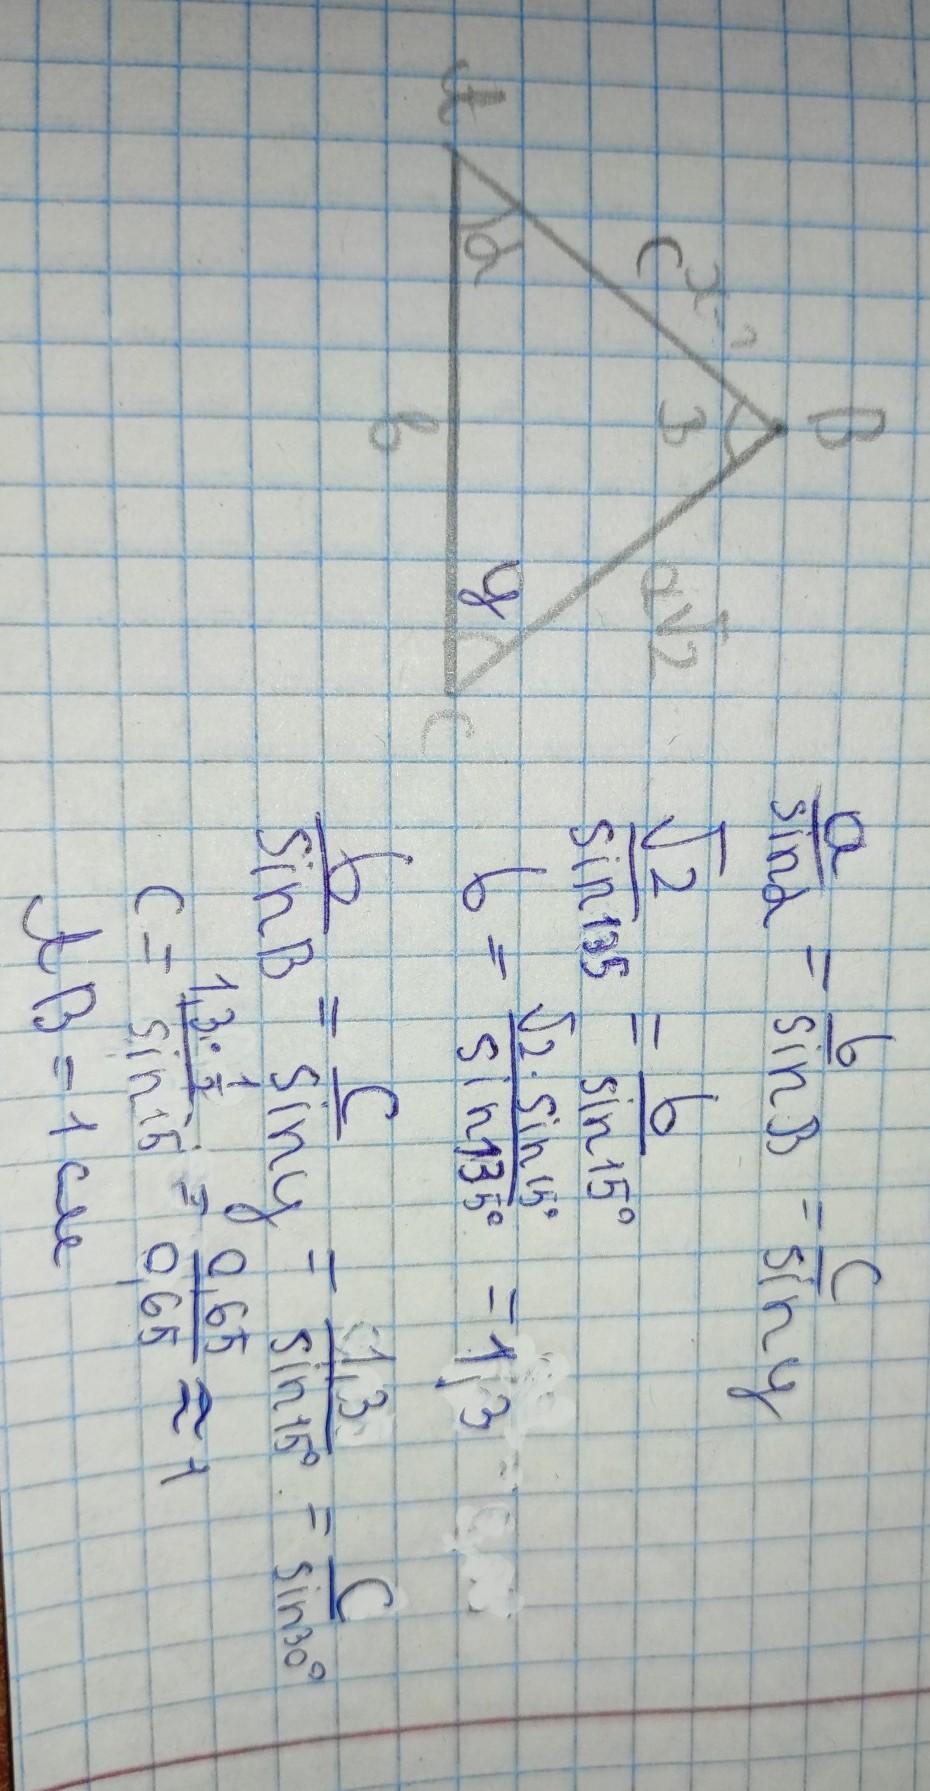 B
c x-?
a√2
β
A
α
γ
C
b
a/sinα = b/sinβ = c/sinγ
√2/sin135 = b/sin15°
b = √2·sin15°/sin135° = 1,3
b/sinβ = c/sinγ = 1,3/sin15° = c/sin30°
c = 1,3·1/2/sin15 = 0,65/0,65 ≈ 1
AB = 1 см